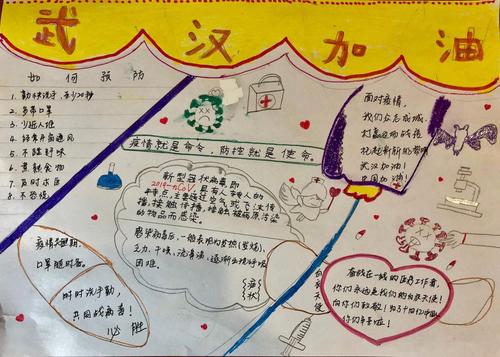 武汉加油
如何预防
1. 勤快洗手,至少20秒
2. 多带口罩
3. 少近人堆
4. 经常开窗通风
5. 不踏野味
6. 煮熟食物
7. 及时求医
8. 不恐慌
疫情就是命令,防控就是使命。
面对疫情,
我们众志成城,
打赢这场战役
托起新新的希望
武汉加油!
中国加油!
新型冠状病毒即
2019-nCoV,具有人传人的
特点,主要通过空气或飞沫传
播,接触传播,接触被病原污染
的物品而感染。
感染病毒后,一般表现为发热(发烧),
乏力,干咳,流鼻涕,逐渐出现呼吸
困难。
{症状}
疫情长短期,
口罩随时备。
时时洗手勤,
共同战病毒!
必胜
白衣天使
奋战在一线的医疗工作者,
你们永远是我们的白衣天使!
向你们致敬!
你们辛苦啦!